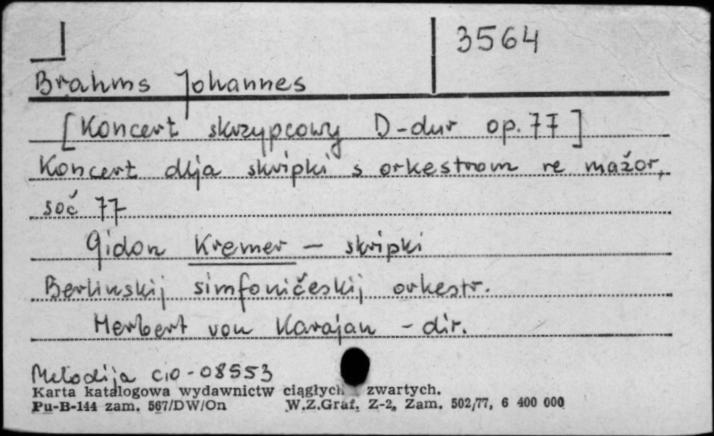 3564
Brahms Johannes
[Koncert skrzypcowy D-dur op. 77]
Koncert dlja skripki s orkestrom re mažor,
soč 77
Gidon Kremer - skripki
Berlinskij simfoničeskij orkestr.
Herbert von Karajan - dir.
Melodija C10-08553
Karta katalogowa wydawnictw ciągłych zwartych.
Pu-B-144 zam. 567/DW/On W.Z.Graf. Z-2, Zam. 502/77, 6 400 000